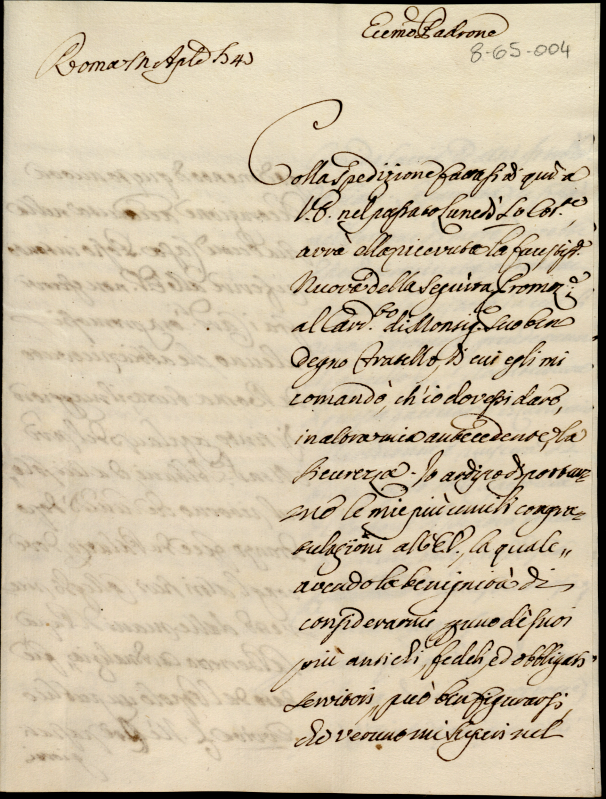 Ecc.mo Padrone
8-65-004
Roma Ap.le
Colla spedizione fattasi di quì a
V.E. nel passato Lunedì
avrà ella ricevuta la faustis.
Nuova della seguìta Promoz.e
al Card.to di Monsig. suo ben
degno fratello, di cui egli mi
comandò, ch'io dovessi dare,
in altra mia antecedente, la
sicurezza. Io ardisco di portar-
ne le mie più umili congra-
tulazioni all'E.V., la quale,,
avendo la benignità di
considerarmi p uno de' suoi
più antichi, fedeli, ed obbligati
servitori, può ben figurarsi,
che veruno mi superi nel